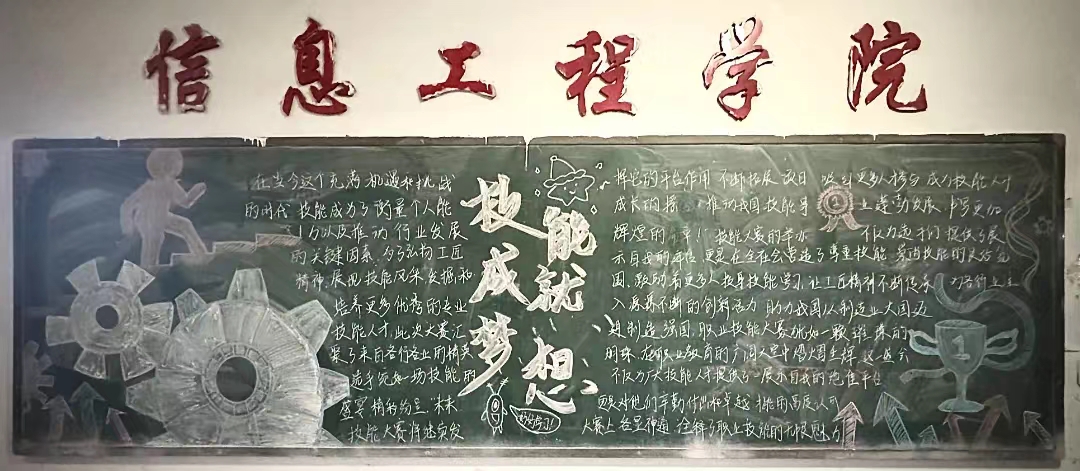 信息工程学院
技能
成就
梦想
在当今这个充满机遇和挑战
的时代 技能成为了衡量个人能
力以及推动行业发展
的关键因素,为了弘扬工匠
精神,展现技能风采,发掘和
培养更多优秀的专业
技能人才,此次大赛汇
聚了来自各行各业的精英
选手,宛如一场技能的
盛宴 精彩纷呈.未来
技能大赛将继续发
好好学习!
挥它的平台作用 不断拓展项目 吸引更多人参与 成为技能人才
成长的摇 推动我国技能事 业蓬勃发展 书写更加
辉煌的 章!技能大赛的举办 不仅为选手们提供了展
示自我的平台,更是在全社会营造了尊重技能
围,鼓励着更多人投身技能学习,让工匠精神不断传承 为各行业注
入源源不断的创新活力 助力我国从制造业大国迈
向制造强国,职业技能大赛犹如一颗璀璨的
明珠 在职业教育的广阔天空中熠熠生辉 这 大会
不仅为广大技能人才提供了展示自我的绝佳平台
更是对他们辛勤付出和卓越技能的高度认可
大赛上 各显神通 诠释了职业技能的无限魅力
1
1